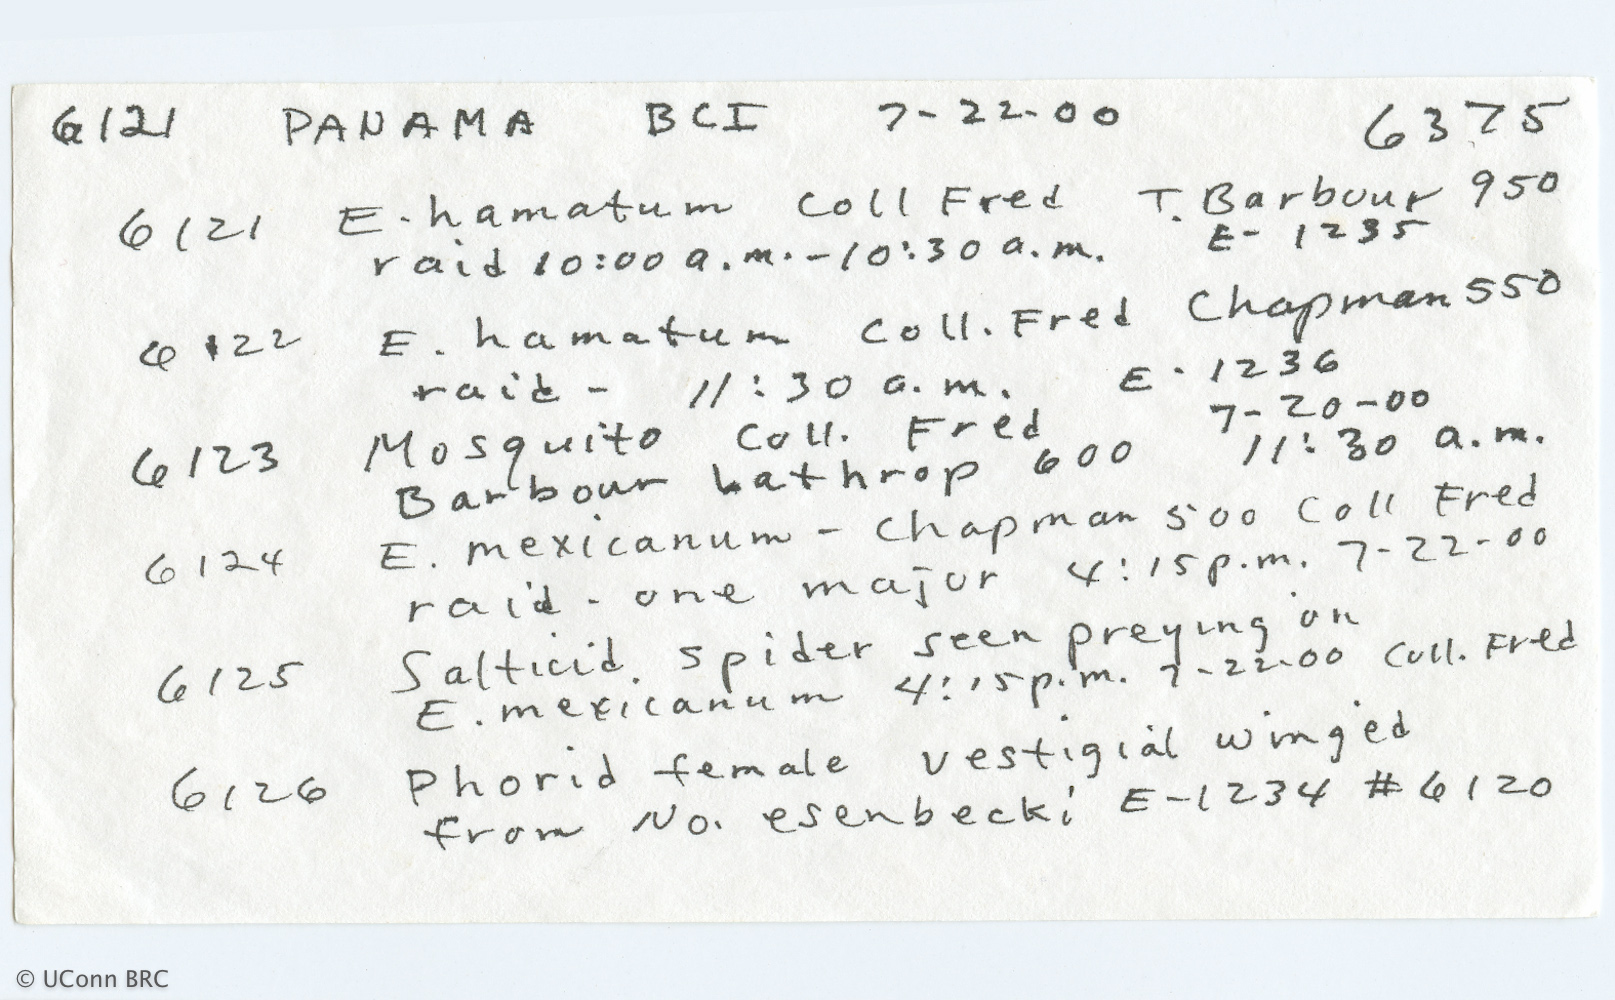 6121 PANAMA BCI 7-22-00 6375
6121 E. hamatum Coll Fred T. Barbour 950
raid 10:00 a.m. - 10:30 a.m. E- 1235
6122 E. hamatum Coll. Fred Chapman 550
raid - 11:30 a.m. E- 1236
6123 Mosquito Coll. Fred 7-20-00
Barbour Lathrop 600 11:30 a.m.
6124 E. mexicanum - Chapman 500 Coll Fred
raid - one major 4:15 p.m. 7-22-00
6125 Salticid spider seen preying on
E. mexicanum 4:15 p.m. 7-22-00 Coll. Fred
6126 Phorid female vestigial winged
from No. esenbecki E-1234 #6120
© UConn BRC